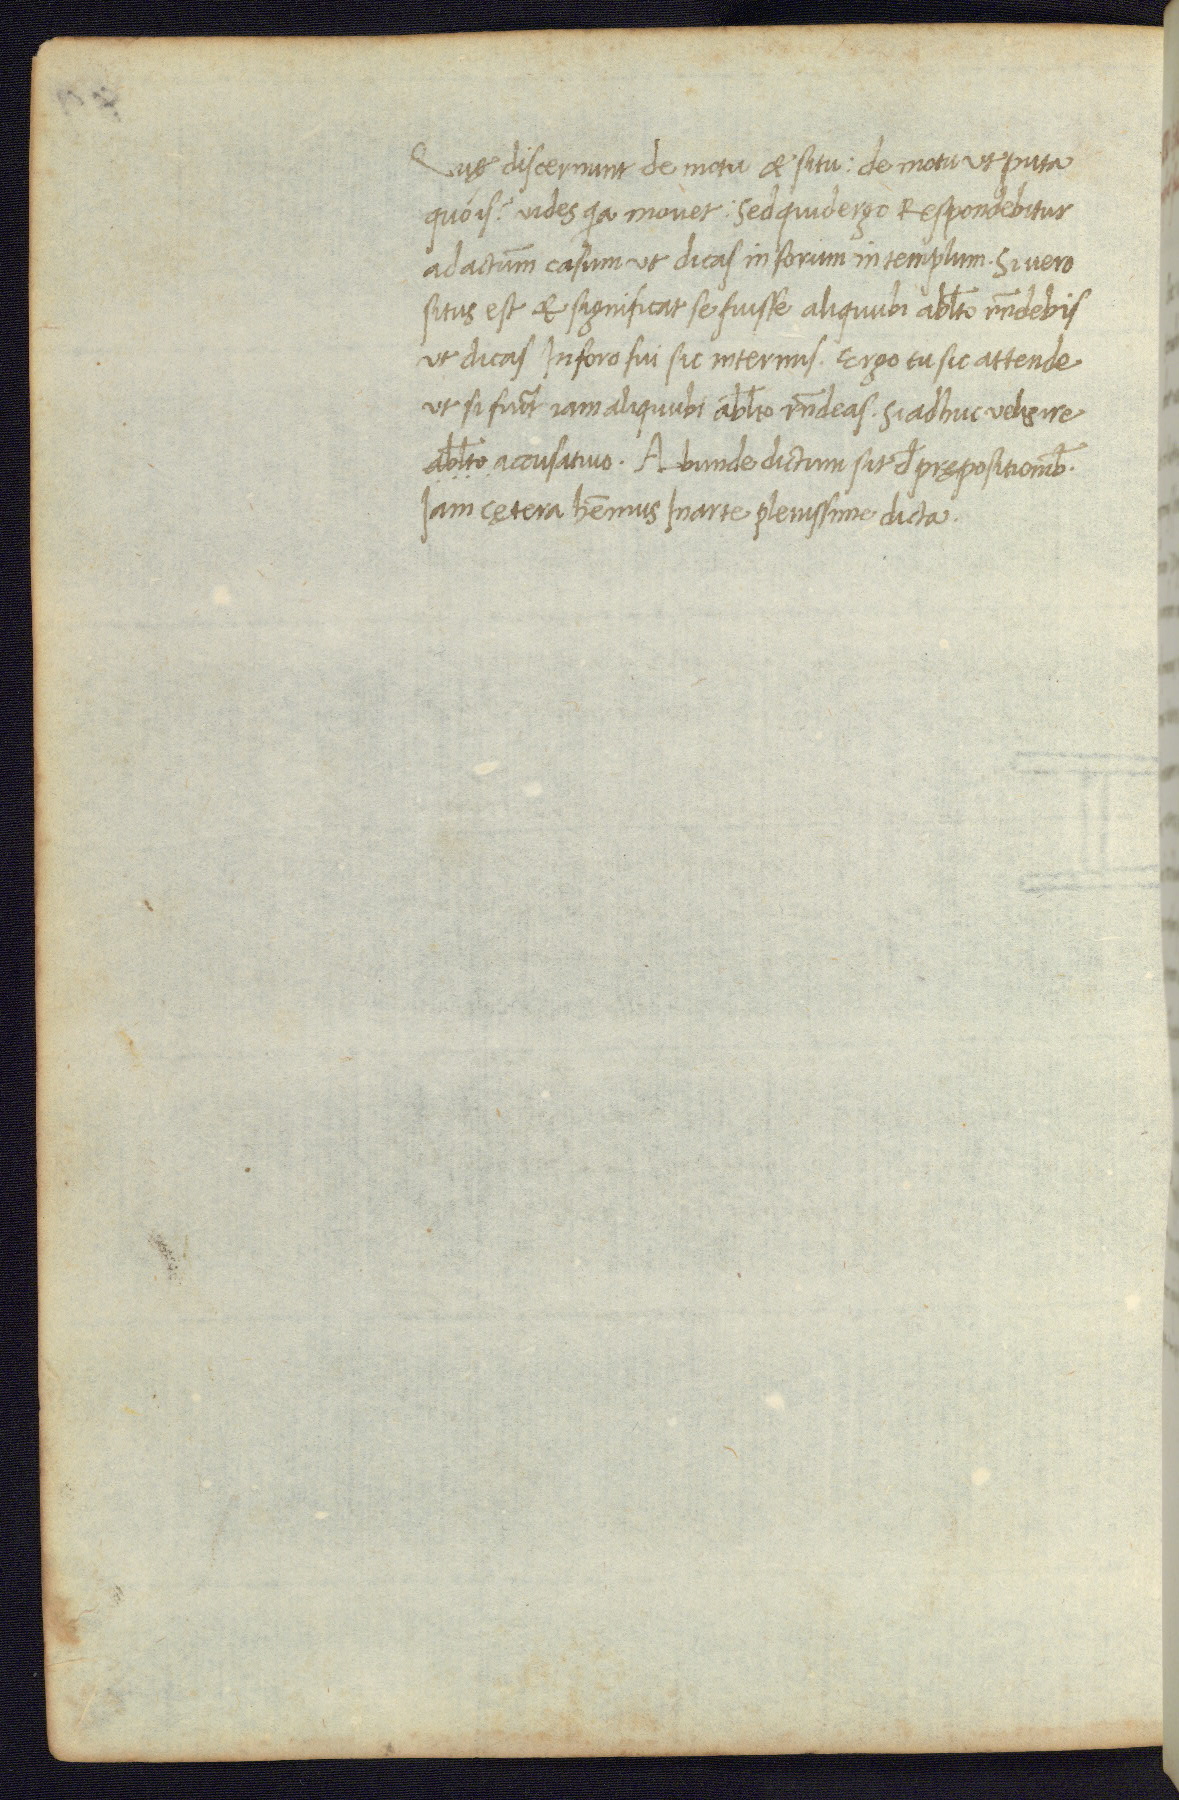 Quę discernunt de motu & situ: de motu ut puta
quó is? uides qa mouet: Sed quid ergo Respondebitur
ad actūm casum ut dicas in forum in templum. Si uero
situs est & significat se fuisse aliquubi ablto rn̄debis
ut dicas In foro fui sic internus. Ergo tu sic attende
ut si fuūt iam aliquubi ablto rn̄deas. Si adhuc uelis ire
ablto accusatiuo. Abunde dictum sit đ prępositionib.
Iam cętera hēmus In arte plenissime dicta.